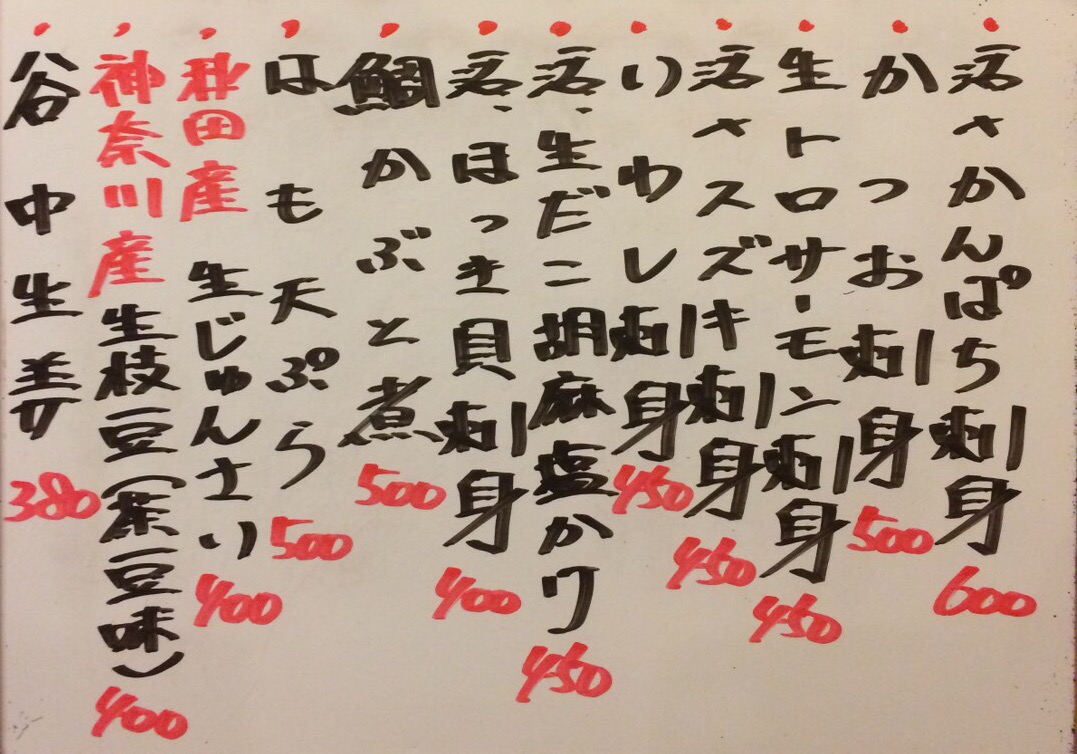 活〆かんぱち刺身 600
かつお刺身 500
生トロサーモン刺身 450
活〆スズキ刺身 450
いわし刺身 450
活、生だこ胡麻塩かけ 450
活、ほっき貝刺身 400
鯛かぶと煮 500
はも天ぷら 500
秋田産生じゅんさい 400
神奈川産生枝豆(茶豆味) 400
谷中生姜 380